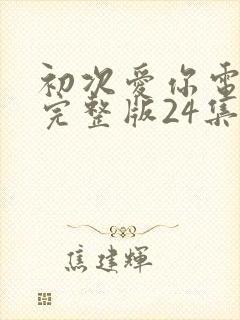 初次愛你電
完整版24集
焦建輝